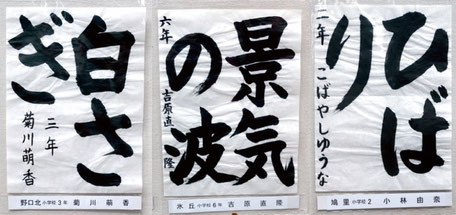 白さ
ぎ
三年
菊川萌香
野口北小学校3年 菊川萌香
景気
の波
六年 吉原直隆
氷丘小学校6年 吉原直隆
ひば
り
二年 こばやしゆうな
鳩里小学校2 小林由奈